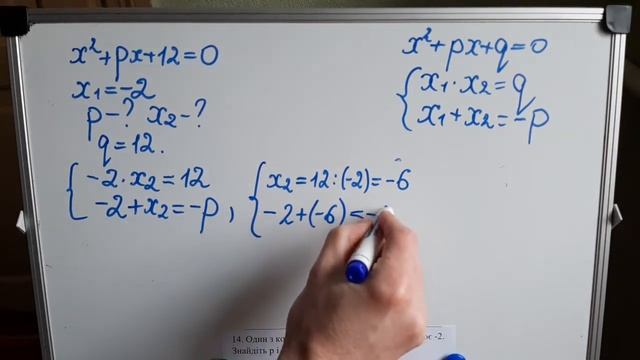 x²+px+12=0
x₁=-2
p-? x₂-?
q=12.
x²+px+q=0
x₁·x₂=q
x₁+x₂=-p
-2·x₂=12
-2+x₂=-p,
x₂=12:(-2)=-6
-2+(-6)=-
14. Один з ко
є -2.
Знайдіть p і